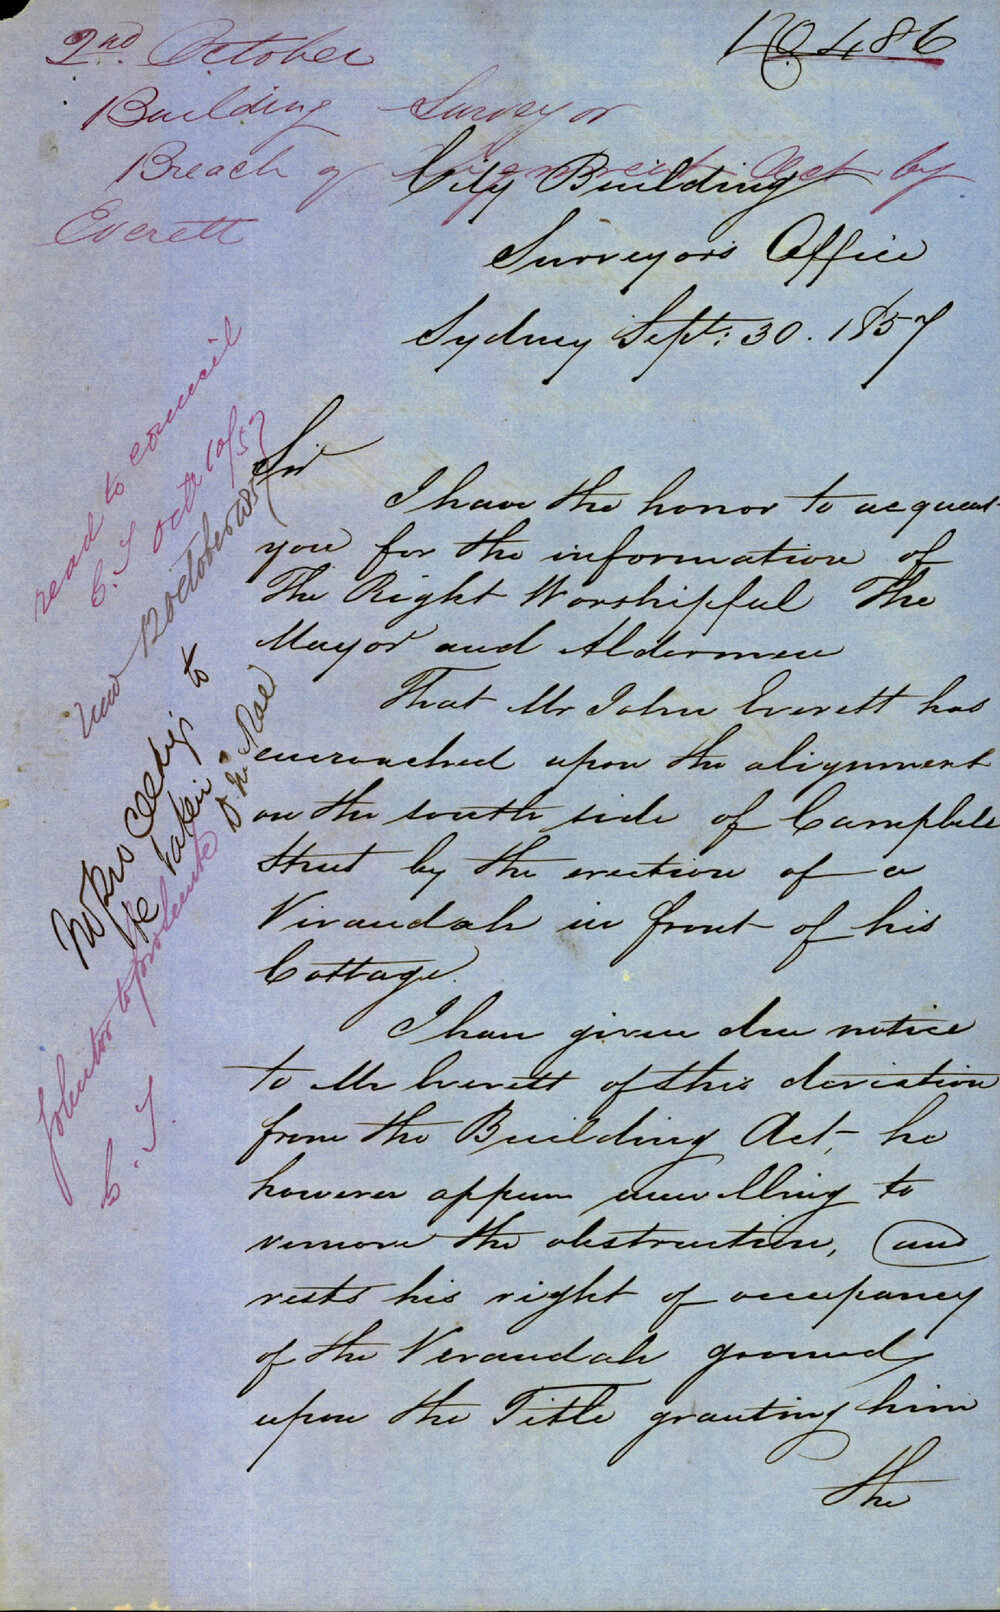 No 486
2nd October
Building Surveyor
Breach of Alignment Act by
Everett
City Building
Surveyors Office
Sydney Sept: 30. 1857
Sir
I have the honor to acquaint
you for the information of
The Right Worshipful The
Mayor and Aldermen
That Mr John Everett has
encroached upon the alignment
on the south side of Campbell
Street by the erection of a
Virandah in front of his
Cottage.
I have given due notice
to Mr Everett of this deviation
from the Building Act, he
however appears unwilling to
remove the obstruction, and
rests his right of occupancy
of the Verandah ground
upon the Title granting him
the
read to council
C. T Oct 10/57
12 October 1857
No proceedings to
be taken
Solicitor to prosecute
C. T.